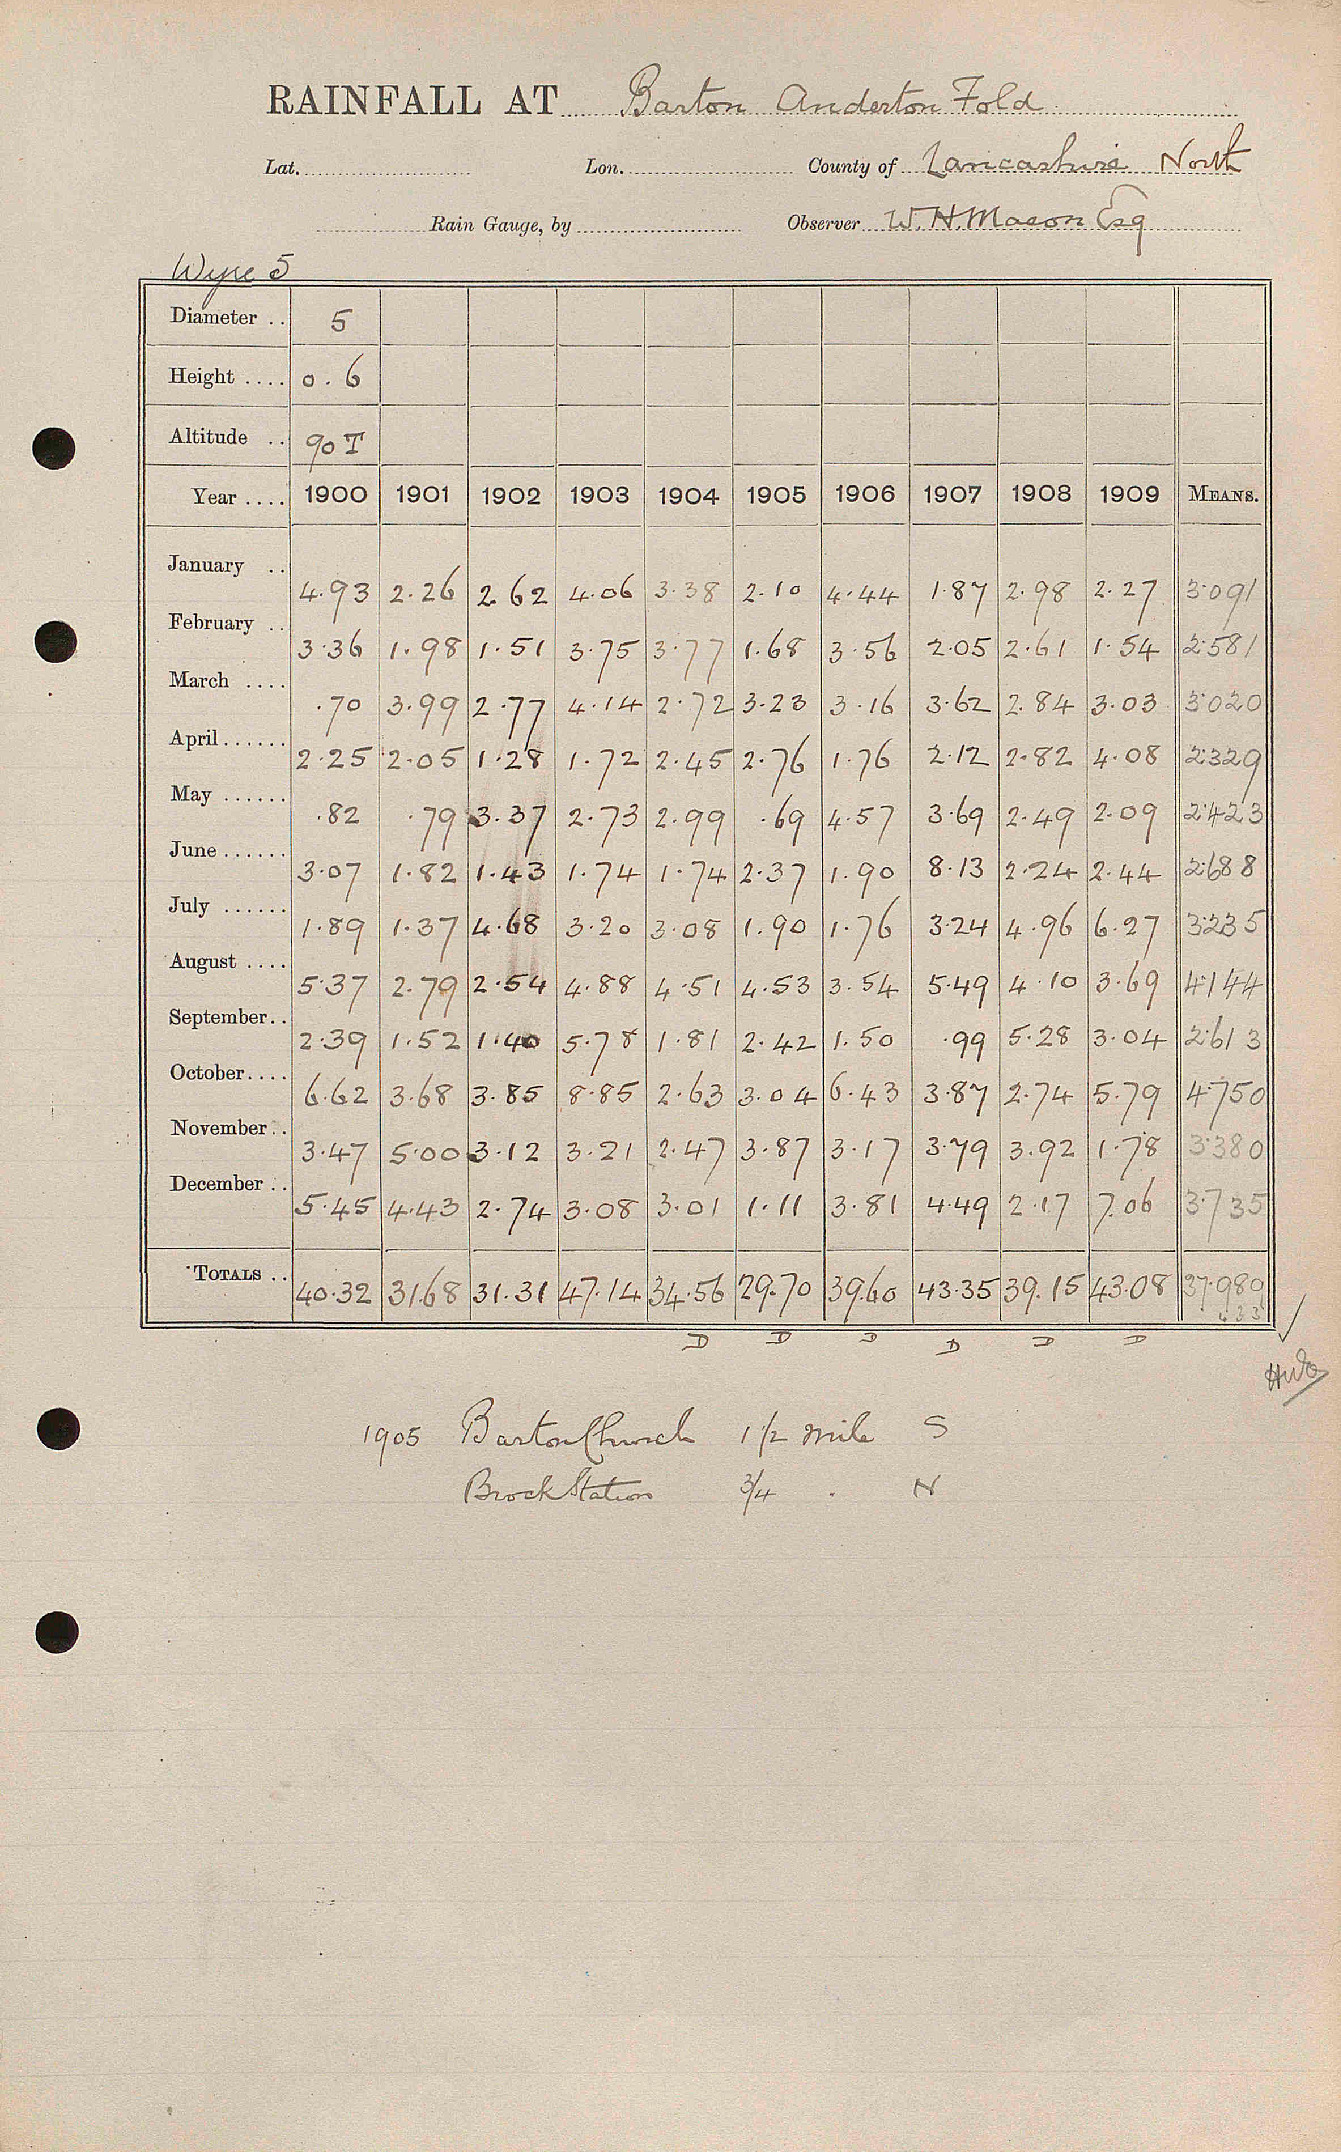 RAINFALL AT Barton Anderton Fold
Lat. Lon. County of Lancashire North
Rain Gauge, by Observer W. H. Mason Esq
Wyre 5
Diameter .. 5
Height .... 0.6
Altitude .. 90 T
Year .... 1900 1901 1902 1903 1904 1905 1906 1907 1908 1909 MEANS.
January .. 4.93 2.26 2.62 4.06 3.38 2.10 4.44 1.87 2.98 2.27 3.091
February .. 3.36 1.98 1.51 3.75 3.77 1.68 3.56 2.05 2.61 1.54 2.581
March .... .70 3.99 2.77 4.14 2.72 3.23 3.16 3.62 2.84 3.03 3.020
April...... 2.25 2.05 1.28 1.72 2.45 2.76 1.76 2.12 2.82 4.08 2.329
May ...... .82 .79 3.37 2.73 2.99 .69 4.57 3.69 2.49 2.09 2.423
June ...... 3.07 1.82 1.43 1.74 1.74 2.37 1.90 8.13 2.24 2.44 2.688
July ...... 1.89 1.37 4.68 3.20 3.08 1.90 1.76 3.24 4.96 6.27 3.235
August .... 5.37 2.79 2.54 4.88 4.51 4.53 3.54 5.49 4.10 3.69 4.144
September.. 2.39 1.52 1.40 5.78 1.81 2.42 1.50 .99 5.28 3.04 2.613
October.... 6.62 3.68 3.85 8.85 2.63 3.04 6.43 3.87 2.74 5.79 4.750
November .. 3.47 5.00 3.12 3.21 2.47 3.87 3.17 3.79 3.92 1.78 3.380
December .. 5.45 4.43 2.74 3.08 3.01 1.11 3.81 4.49 2.17 7.06 3.735
TOTALS .. 40.32 31.68 31.31 47.14 34.56 29.70 39.60 43.35 39.15 43.08 37.989
D D D D D D
1905 Barton Church 1 1/2 mile S
Brock Station 3/4 . N